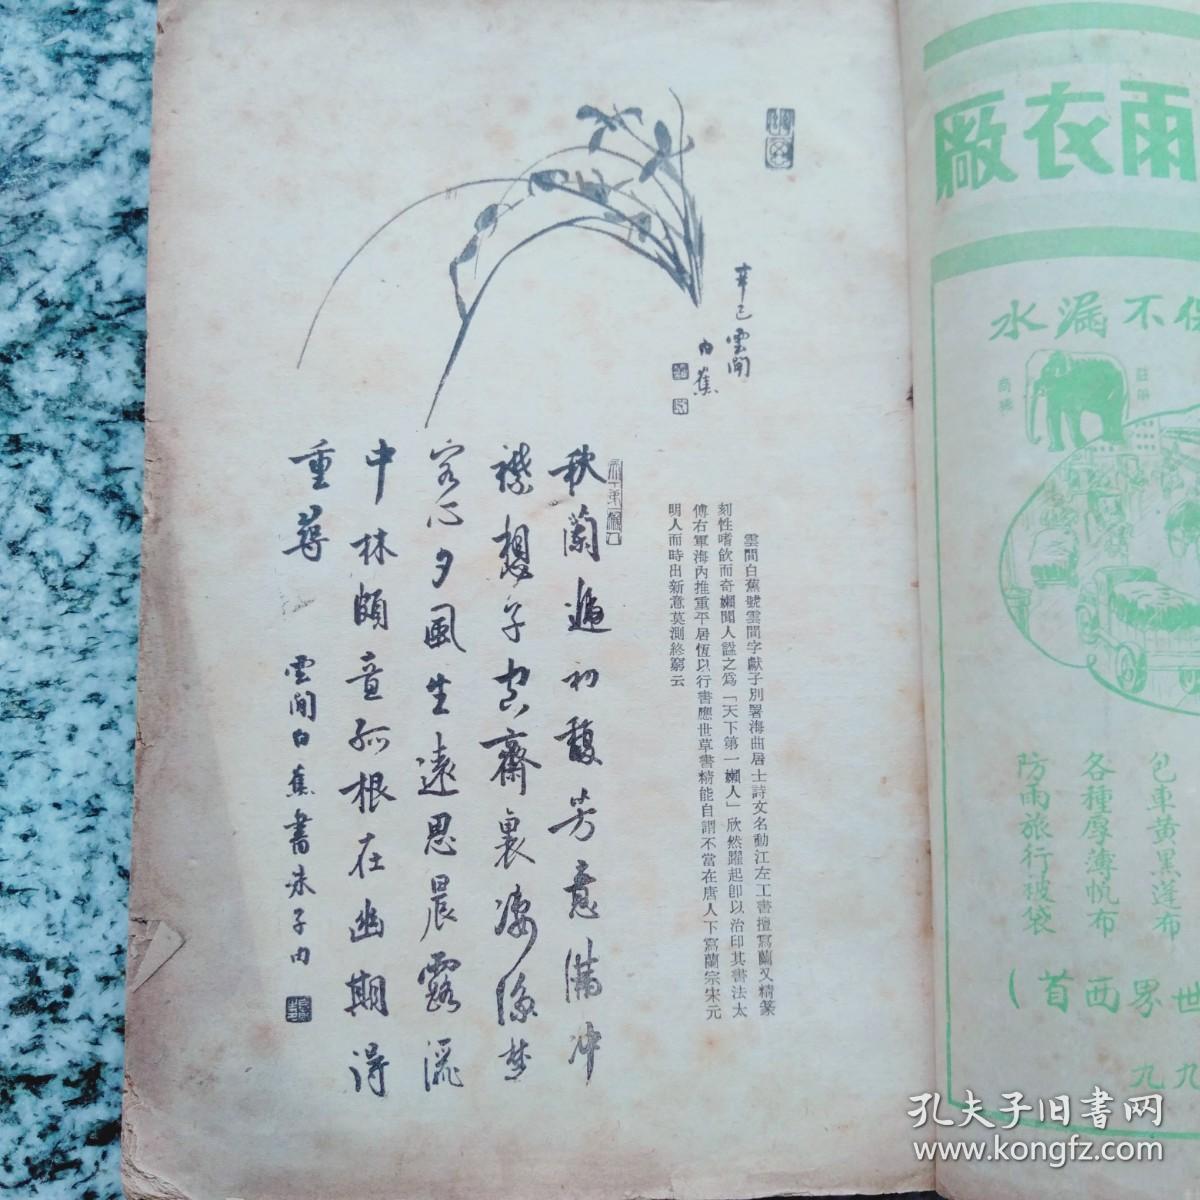 辛巳雲間
白蕉
秋蘭遞初馥芳意滿冲
襟想子空齋裏凄涼楚
客心夕風生遠思晨露灑
中林頗意孤根在幽期得
重尋
雲間白蕉書朱子句
雲間白蕉號雲間字獻子別署海曲居士詩文名動江左工書擅寫蘭又精篆
刻性嗜飲而奇嬾聞人謚之爲「天下第一嬾人」欣然躍起卽以治印其書法太
傅右軍海內推重平居恆以行書應世草書精能自謂不當在唐人下寫蘭宗宋元
明人而時出新意莫測終窮云
雨衣廠
不漏水
商標
包車黃黑蓬布
各種厚薄帆布
防雨旅行被袋
世界西首）
九九
孔夫子旧书网
www.kongfz.com